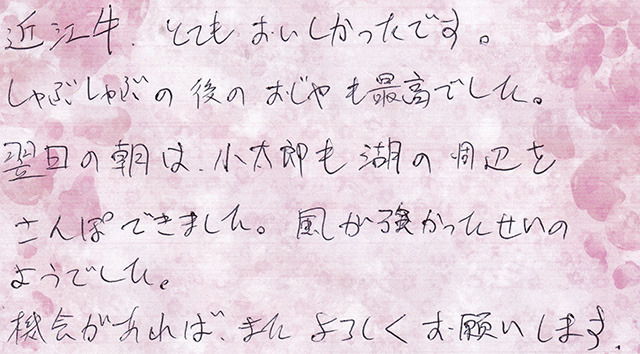 近江牛、とてもおいしかったです。
しゃぶしゃぶの後のおじやも最高でした。
翌日の朝は、小太郎も湖の周辺を
さんぽできました。風が強かったせいの
ようでした。
機会があれば、またよろしくお願いします。